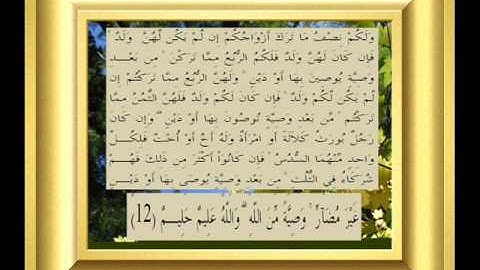 وَلَكُمْ نِصْفُ مَا تَرَكَ أَزْوَاجُكُمْ إِن لَّمْ يَكُن لَّهُنَّ وَلَدٌ
فَإِن كَانَ لَهُنَّ وَلَدٌ فَلَكُمُ الرُّبُعُ مِمَّا تَرَكْنَ ۚ مِن بَعْدِ
وَصِيَّةٍ يُوصِينَ بِهَا أَوْ دَيْنٍ ۚ وَلَهُنَّ الرُّبُعُ مِمَّا تَرَكْتُمْ إِن
لَّمْ يَكُن لَّكُمْ وَلَدٌ ۚ فَإِن كَانَ لَكُمْ وَلَدٌ فَلَهُنَّ الثُّمُنُ مِمَّا
تَرَكْتُم ۚ مِّن بَعْدِ وَصِيَّةٍ تُوصُونَ بِهَا أَوْ دَيْنٍ ۗ وَإِن كَانَ
رَجُلٌ يُورَثُ كَلَالَةً أَوِ امْرَأَةٌ وَلَهُ أَخٌ أَوْ أُخْتٌ فَلِكُلِّ
وَاحِدٍ مِّنْهُمَا السُّدُسُ ۚ فَإِن كَانُوا أَكْثَرَ مِن ذَٰلِكَ فَهُمْ
شُرَكَاءُ فِي الثُّلُثِ ۚ مِن بَعْدِ وَصِيَّةٍ يُوصَىٰ بِهَا أَوْ دَيْنٍ
غَيْرَ مُضَارٍّ ۚ وَصِيَّةً مِّنَ اللَّهِ ۗ وَاللَّهُ عَلِيمٌ حَلِيمٌ (12)